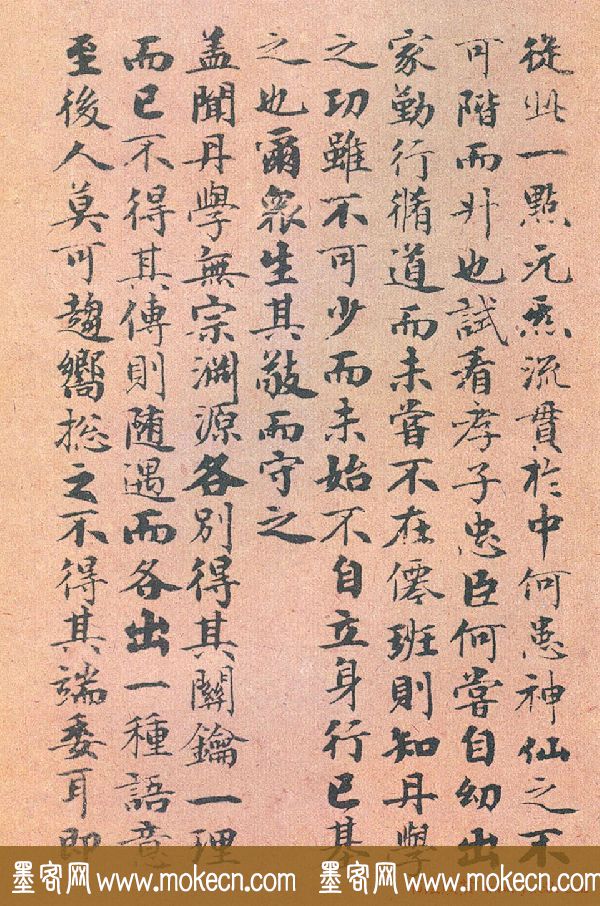 從此一點元炁流貫於中何患神仙之不
可階而升也試看孝子忠臣何嘗自幼出
家勤行脩道而未嘗不在僊班則知丹學
之功雖不可少而未始不自立身行已基
之也爾衆生其敬而守之
盖聞丹學無宗淵源各別得其關鑰一理
而已不得其傳則随遇而各出一種語意
至後人莫可趨嚮揔之不得其端委耳即
墨客网 www.mokecn.com 墨客网 www.mokecn.com